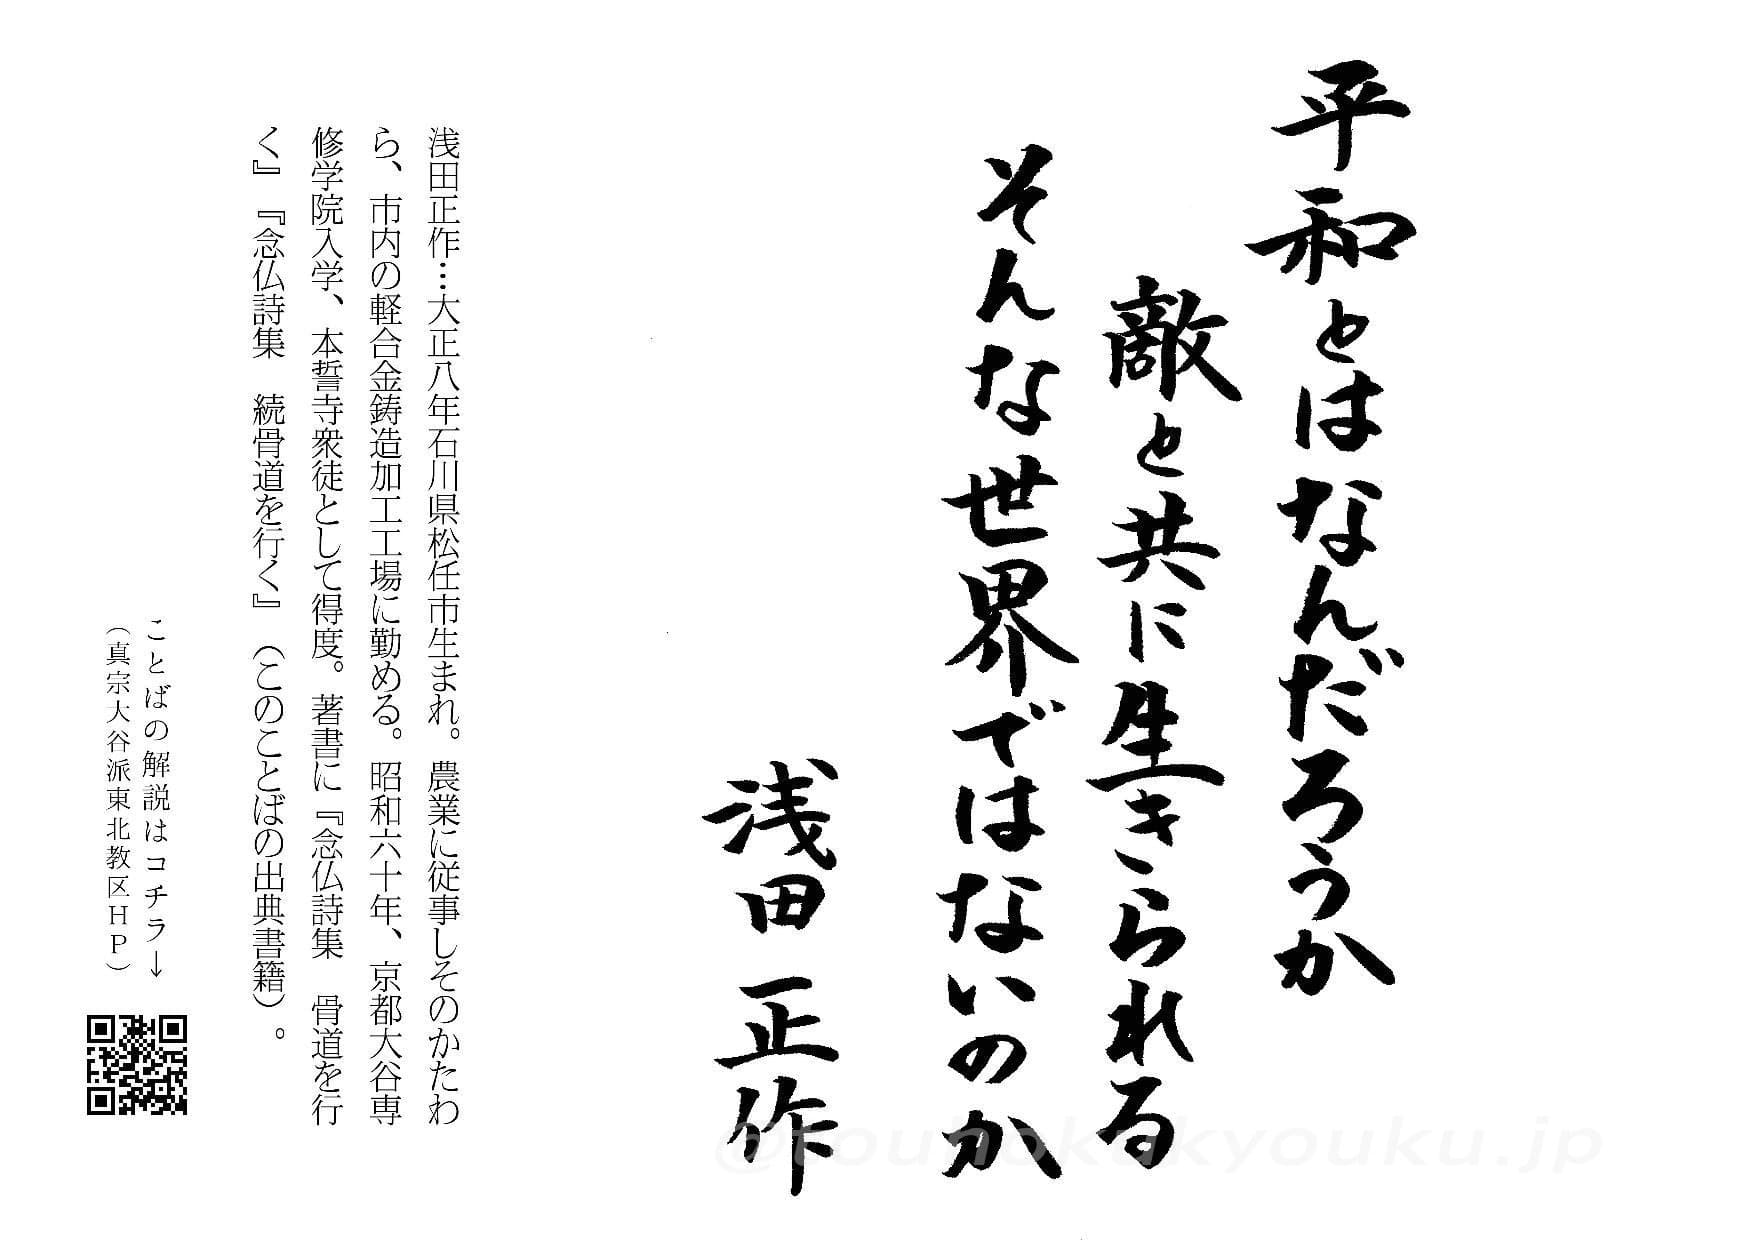 平和とはなんだろうか
敵と共に生きられる
そんな世界ではないのか
浅田正作
浅田正作…大正八年石川県松任市生まれ。農業に従事しそのかたわ
ら、市内の軽合金鋳造加工工場に勤める。昭和六十年、京都大谷専
修学院入学、本誓寺衆徒として得度。著書に『念仏詩集　骨道を行
く』『念仏詩集　続骨道を行く』（このことばの出典書籍）。
ことばの解説はコチラ→
（真宗大谷派東北教区ＨＰ）
@touhokukyouku.jp